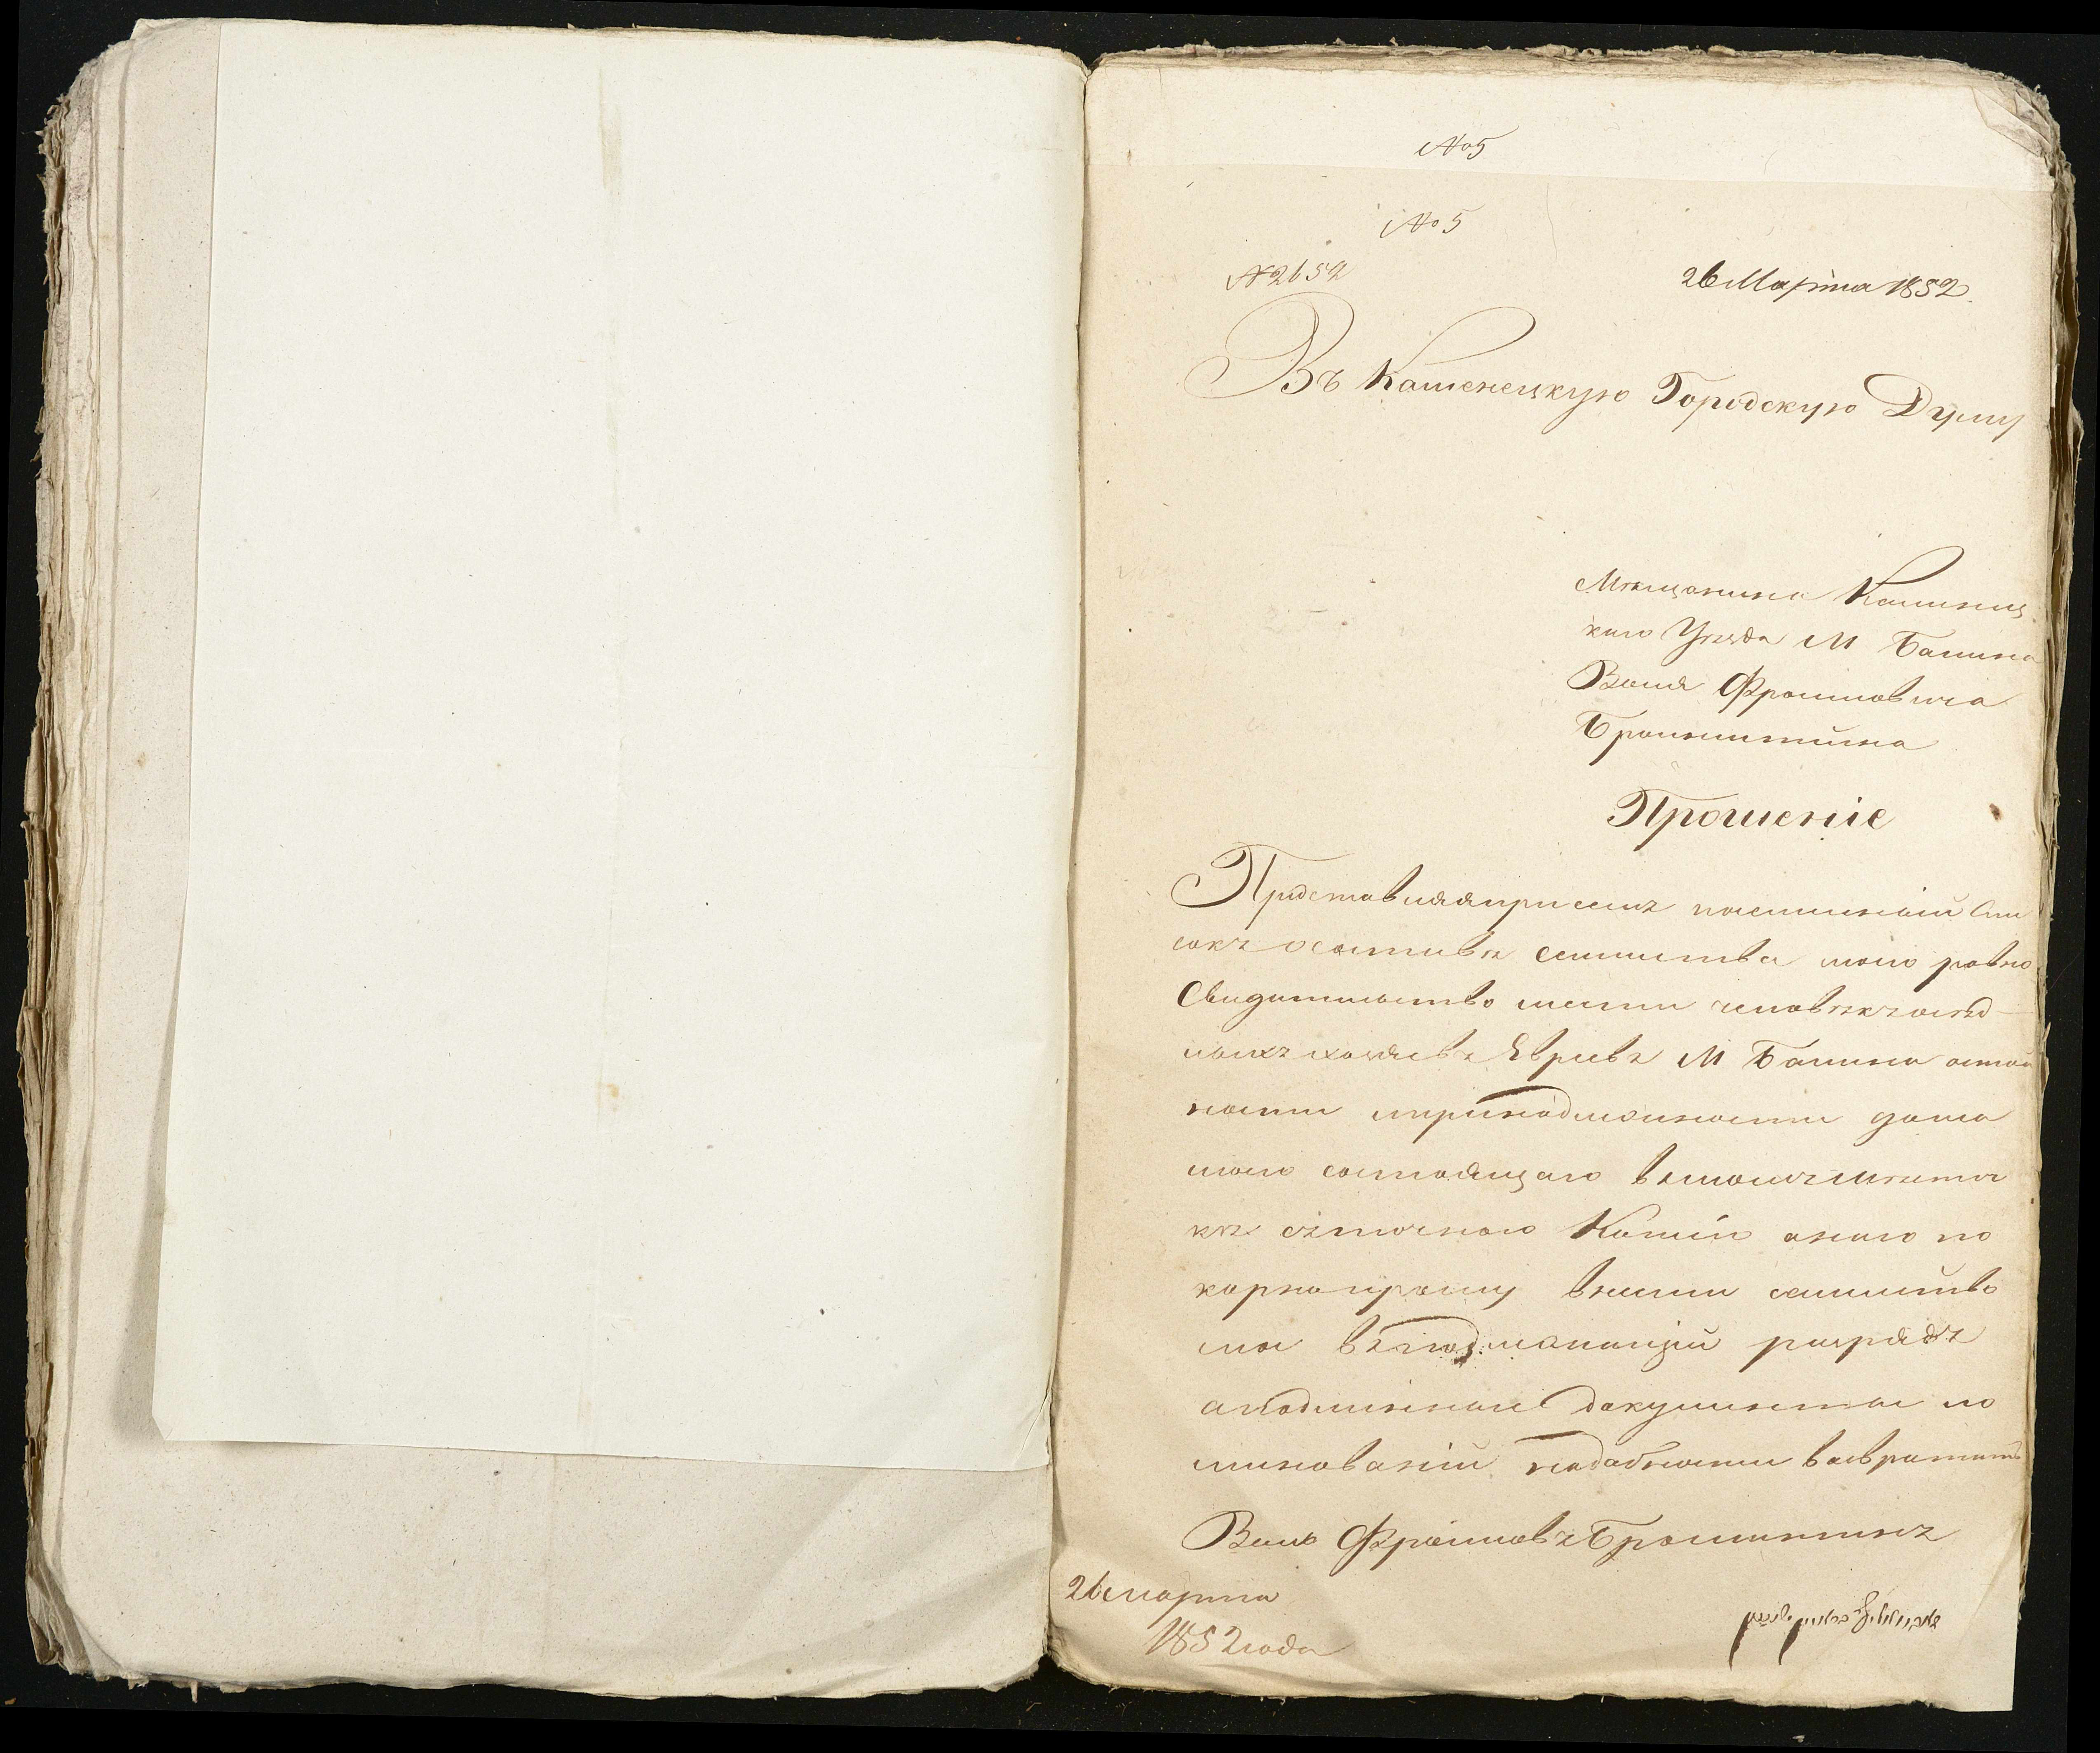 № 5
№ 5
№ 2652
26 Марта 1852.
Въ Каменецкую Городскую Думу
Мѣщанина Каменец
каго Уѣзда М Балина
Воля Фроимовича
Бронштейна
Прошеніе
Представляя при семъ посемейный спи
сокъ о составѣ семейства моего равно
Свидетельство шести человѣкъ осѣд-
лыхъ хозяевъ Евреевъ М Балина о стои
мости и принадлежности дома
моего состоящаго въ томъ мѣстеч
кѣ съ точною Копіею онаго по
корно прошу внести семейство
мое въ надлежащій разрядъ
а подлинные документы по
минованіи надобности возвратить
Воль Фроимовъ Бронштейнъ
26 марта
1852 года